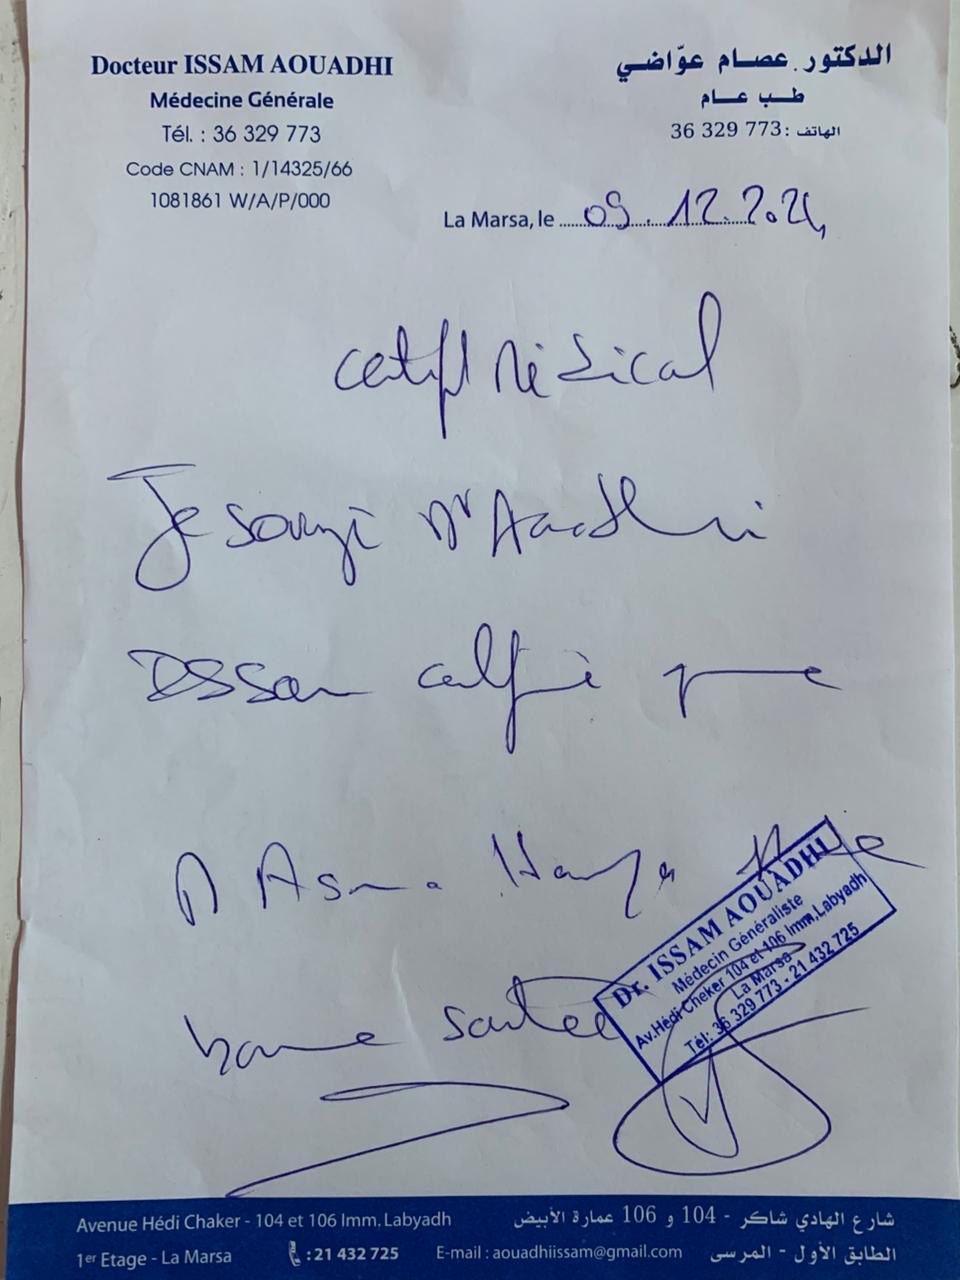 Docteur ISSAM AOUADHI
Médecine Générale
Tél. : 36 329 773
Code CNAM : 1/14325/66
1081861 W/A/P/000
الدكتور عصام عوّاضي
طب عام
الهاتف : 773 329 36
La Marsa, le 09.12.2024
certif Médical
Je soussi Dr Aouadhi
Issam certifie que
Asma Hamza
bonne santée
Dr. ISSAM AOUADHI
Médecin Généraliste
Av.Hédi Cheker 104 et 106 Imm.Labyadh
La Marsa
Tél: 36 329 773 - 21 432 725
Avenue Hédi Chaker - 104 et 106 Imm. Labyadh
1er Etage - La Marsa
: 21 432 725
E-mail : aouadhiissam@gmail.com
شارع الهادي شاكر - 104 و 106 عمارة الأبيض
الطابق الأول - المرسى